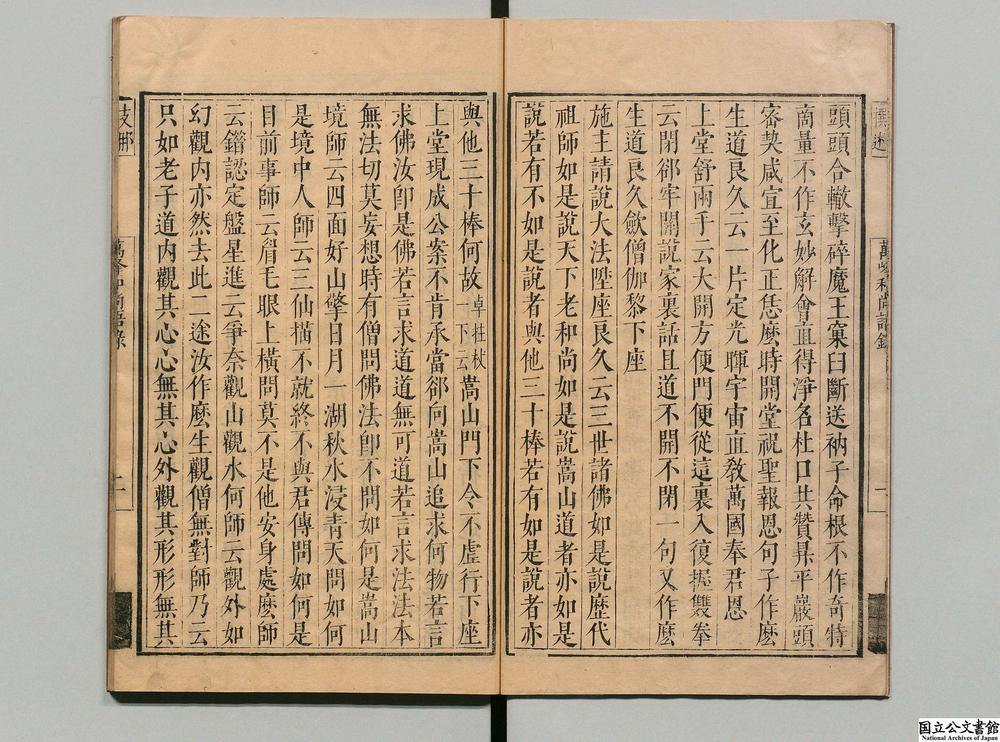 頭頭合轍擊碎魔王窠臼斷送衲子命根不作奇特
商量不作玄妙解會直得淨名杜口共贊昇平巖頭
密契咸宜至化正恁麼時開堂祝聖報恩句子作麼
生道良久云一片定光暉宇宙直教萬國奉君恩
上堂舒兩手云大開方便門便從這裏入復握雙拳
云閉卻牢關說家裏話且道不開不閉一句又作麼
生道良久歛僧伽黎下座
施主請說大法陞座良久云三世諸佛如是說歷代
祖師如是說天下老和尚如是說嵩山道者亦如是
說若有不如是說者與他三十棒若有如是說者亦
與他三十棒何故卓拄杖一下云嵩山門下令不虛行下座
上堂現成公案不肯承當卻向嵩山追求何物若言
求佛汝卽是佛若言求道道無可道若言求法法本
無法切莫妄想時有僧問佛法卽不問如何是嵩山
境師云四面好山擎日月一湖秋水浸青天問如何
是境中人師云三仙橫不就終不與君傳問如何是
目前事師云眉毛眼上橫問莫不是他安身處麼師
云錯認定盤星進云爭奈觀山觀水何師云觀外如
幻觀內亦然去此二途汝作麼生觀僧無對師乃云
只如老子道內觀其心心無其心外觀其形形無其
萬峰和尚語錄
一
萬峰和尚語錄
二
国立公文書館
National Archives of Japan